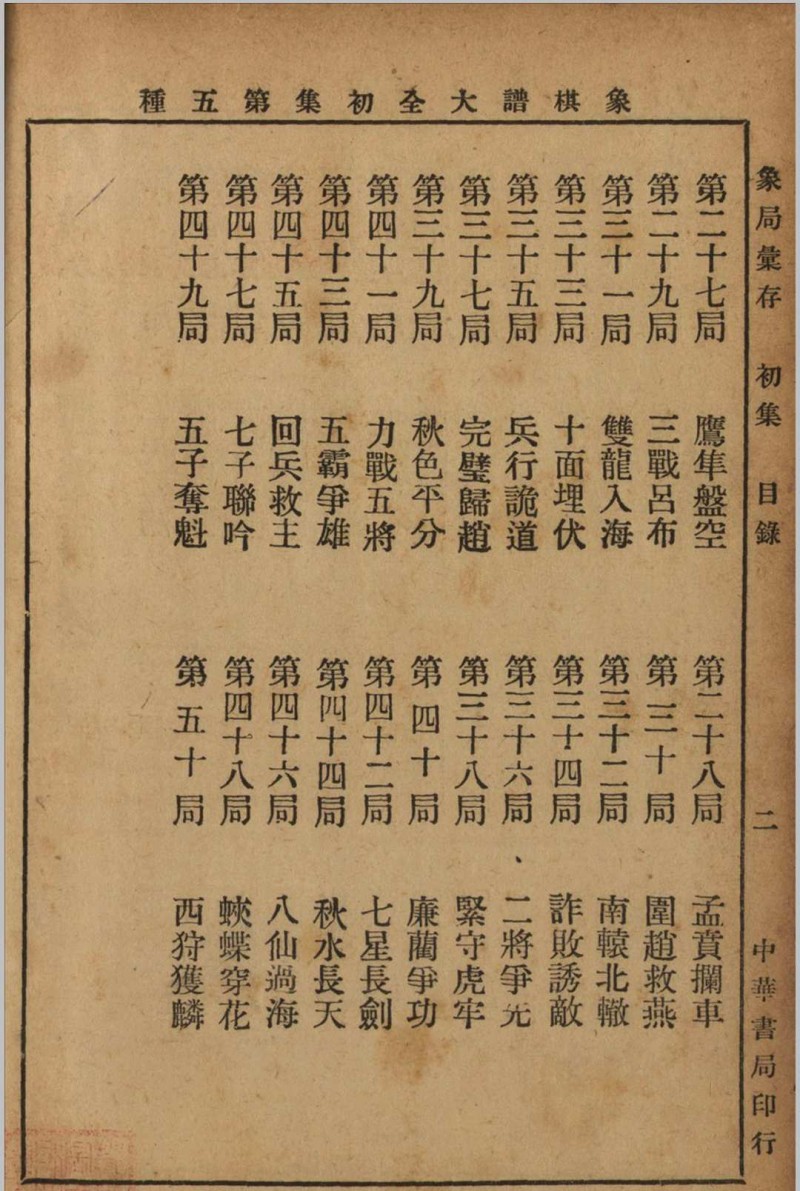 象棋譜大全初集第五種
象局彙存　初集　目錄　二　中華書局印行
第二十七局　鷹隼盤空　第二十八局　孟賁攔車
第二十九局　三戰呂布　第三十局　圍趙救燕
第三十一局　雙龍入海　第三十二局　南轅北轍
第三十三局　十面埋伏　第三十四局　詐敗誘敵
第三十五局　兵行詭道　第三十六局　二將爭先
第三十七局　完璧歸趙　第三十八局　緊守虎牢
第三十九局　秋色平分　第四十局　廉藺爭功
第四十一局　力戰五將　第四十二局　七星長劍
第四十三局　五霸爭雄　第四十四局　秋水長天
第四十五局　回兵救主　第四十六局　八仙過海
第四十七局　七子聯吟　第四十八局　蛺蝶穿花
第四十九局　五子奪魁　第五十局　西狩獲麟